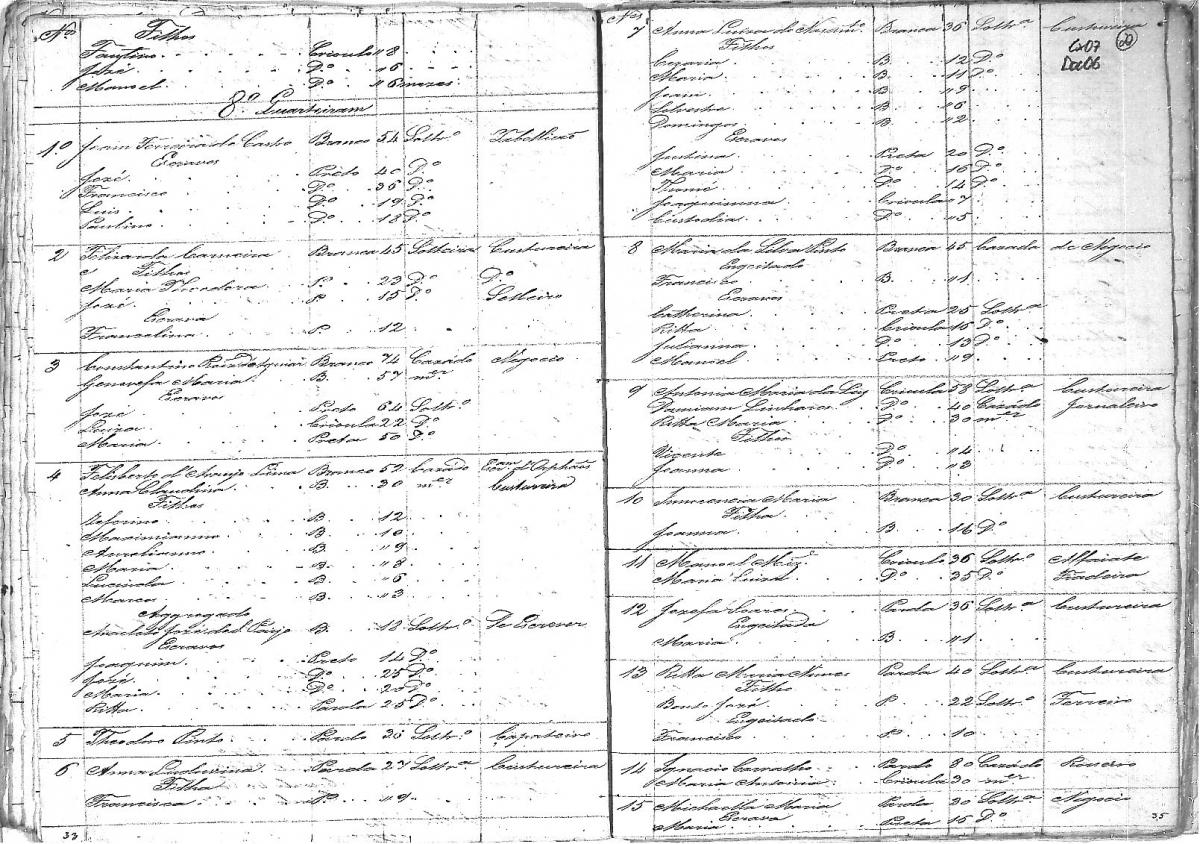 Nos
Filhos
Faustino Crioulo " 8
José Do " 6
Manoel Do " 6 mezes
8º Quarteiram
1º Joam Ferreira de Castro Branco 54 Soltro Tabelliaõ
Escravos
José Preto 40 Do
Francisco Do 36 Do
Luis Do 19 Do
Paulino Do 18 Do
2 Carneira Branca 45 Solteira Custureira
Filhos
Maria Theodora P. 23 Do Do
José P. 15 Do Selleiro
Escrava
Francelina P. 12
3 Constantino Branco 74 Cazado Negocio
Genovefa Maria B. 57 mer
Escravos
José Preto 64 Soltro
Luiza Crioula 22 Do
Maria Preta 50 Do
4 Feliberto d'Araujo Lima Branco 52 Cazado Orphaõs
Anna Claudina B. 30 mer Custureira
Filhos
Zeferino B. 12
Maximianno B. 10
Aurelianno B. " 9
Maria B. " 8
Lucinda B. " 6
Marcos B. " 3
Aggregado
Anacleto José B. 18 Soltro De Escrever
Escravos
Joaquim Preto 14 Do
José Do 25 Do
Maria Do 20 Do
Ritta Parda 25 Do
5 Theodoro Pinto Pardo 36 Soltro Capateiro
6 Anna Parda 27 Soltra Custureira
Filha
Francisca P. " 9
33
Nos
7 Anna Luiza do Branca 36 Soltra Custureira
20
Cx07
Doc06
Filhos
Cezaria B. 12 Do
Maria B. 11 Do
Joam B. " 8
Silvestre B. " 6
Domingos B. " 2
Escravos
Justina Preta 20 Do
Maria Do 16 Do
Thomé Do 14 Do
Joaquimna Crioula " 7
Custodia Do " 5
8 Maria da Silva Pinto Branca 45 Cazada de Negocio
Engeitado
Francisco B. " 1
Escravos
Catherina Preta 25 Soltra
Ritta Crioula 15 Do
Julianna Do 13 Do
Manoel Preto " 9
9 Antonia Maria da Crioula 58 Soltra Custureira
Damiam Linhares Do 40 Cazado Jornaleiro
Ritta Maria Do 30 mer
Filhos
Vicente Do " 4
Joanna Do " 3
10 Innocencia Maria Branca 30 Soltra Custureira
Filha
Joanna B. 16 Do
11 Manoel Miz Crioulo 36 Soltro Alfaiate
Maria Do 25 Do Fiadeira
12 Jozefa Soares Parda 36 Soltra Custureira
Engeitada
Maria B. " 1
13 Ritta Maria Nunes Parda 40 Soltra Custureira
Filho
Bento José P. 22 Soltro Ferreiro
Engeitado
Francisco P. 10
14 Ignacio Carvalho Pardo 80 Cazado
Maria Antonia Crioula 30 mer
15 Michaella Maria Parda 30 Soltra Negocio
Escrava
Maria Preta 15 Do
35